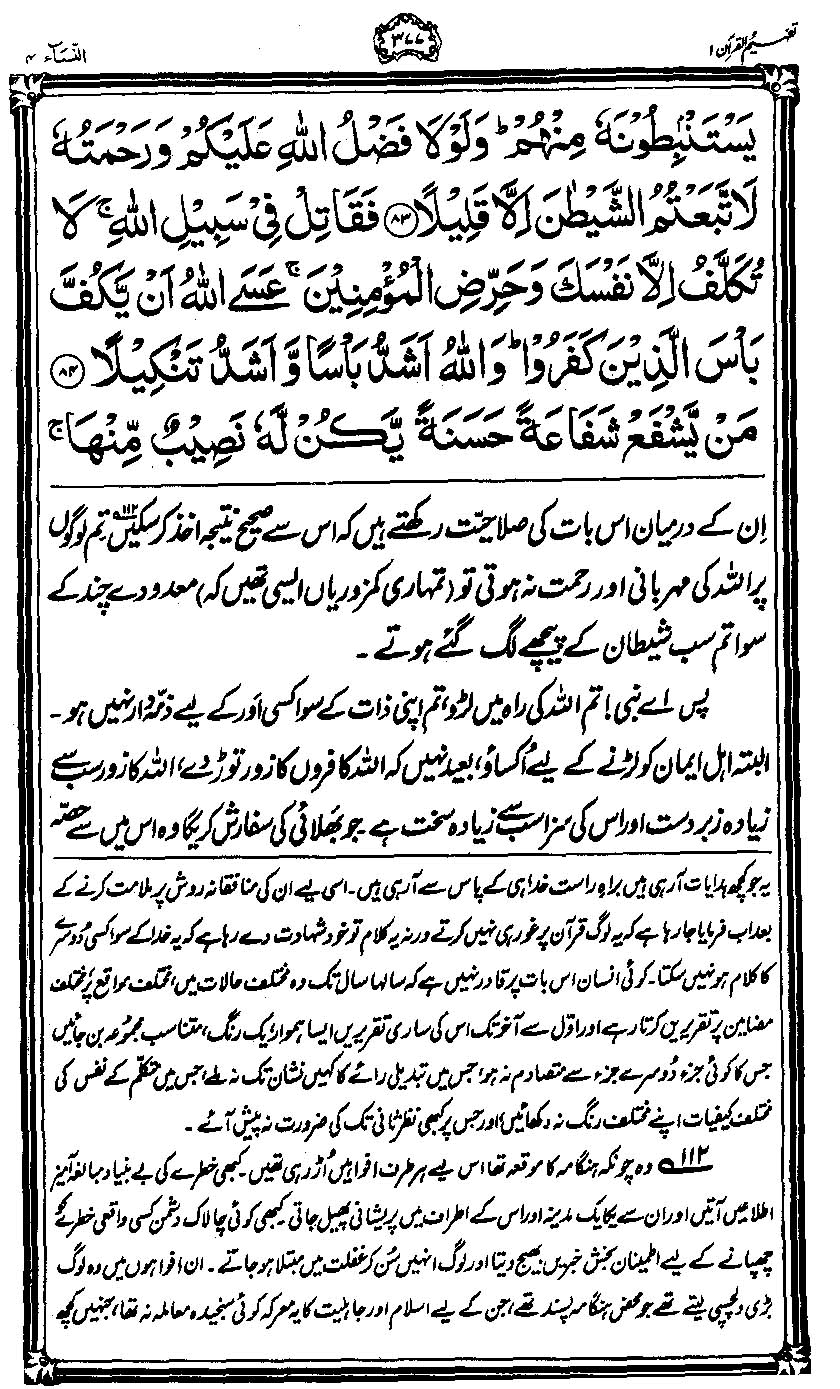 تفہیم القرآن ۱
۳۷۷
النساء ۴
يَسْتَنْۢبِطُوْنَهٗ مِنْهُمْ ؕ وَلَوْلَا فَضْلُ اللّٰهِ عَلَيْكُمْ وَرَحْمَتُهٗ
لَاتَّبَعْتُمُ الشَّيْطٰنَ اِلَّا قَلِيْلًا ﴿۸۳﴾ فَقَاتِلْ فِيْ سَبِيْلِ اللّٰهِ ۚ لَا
تُكَلَّفُ اِلَّا نَفْسَكَ وَحَرِّضِ الْمُؤْمِنِيْنَ ۚ عَسَى اللّٰهُ اَنْ يَّكُفَّ
بَاْسَ الَّذِيْنَ كَفَرُوْا ؕ وَاللّٰهُ اَشَدُّ بَاْسًا وَّاَشَدُّ تَنْكِيْلًا ﴿۸۴﴾
مَنْ يَّشْفَعْ شَفَاعَةً حَسَنَةً يَّكُنْ لَّهٗ نَصِيْبٌ مِّنْهَا ۚ
اِن کے درمیان اس بات کی صلاحیت رکھتے ہیں کہ اس سے صحیح نتیجہ اخذ کرسکیں۱۱۲۔ تم لوگوں
پر اللہ کی مہربانی اور رحمت نہ ہوتی تو (تمہاری کمزوریاں ایسی تھیں کہ) معدودے چند کے
سوا تم سب شیطان کے پیچھے لگ گئے ہوتے۔
پس اے نبی! تم اللہ کی راہ میں لڑو، تم اپنی ذات کے سوا کسی اَور کے لیے ذمّہ دار نہیں ہو۔
البتہ اہل ایمان کو لڑنے کے لیے اُکساؤ، بعید نہیں کہ اللہ کافروں کا زور توڑ دے، اللہ کا زور سب سے
زیادہ زبردست اور اس کی سزا سب سے زیادہ سخت ہے۔ جو بھلائی کی سفارش کریگا وہ اس میں سے حصّہ
یہ جو کچھ ہدایات آرہی ہیں براہِ راست خدا ہی کے پاس سے آرہی ہیں۔ اسی لیے ان کی منافقانہ روش پر ملامت کرنے کے
بعد اب فرمایا جارہا ہے کہ یہ لوگ قرآن پر غور ہی نہیں کرتے ورنہ یہ کلام تو خود شہادت دے رہا ہے کہ یہ خدا کے سوا کسی دُوسرے
کا کلام ہو نہیں سکتا۔ کوئی انسان اس بات پر قادر نہیں ہے کہ سالہا سال تک وہ مختلف حالات میں، مختلف مواقع پر، مختلف
مضامین پر تقریریں کرتا رہے اور اوّل سے آخر تک اس کی ساری تقریریں ایسا ہموار، یک رنگ، متناسب مجموعہ بن جائیں
جس کا کوئی جزء دُوسرے جزء سے متصادم نہ ہو، جس میں تبدیلی رائے کا کہیں نشان تک نہ ملے، جس میں متکلّم کے نفس کی
مختلف کیفیات اپنے مختلف رنگ نہ دکھائیں، اور جس پر کبھی نظرثانی تک کی ضرورت نہ پیش آئے۔
۱۱۲ وہ چونکہ ہنگامہ کا موقعہ تھا اس لیے ہر طرف افواہیں اُڑ رہی تھیں۔ کبھی خطرے کی بے بنیاد مبالغہ آمیز
اطلاعیں آتیں اور ان سے یکایک مدینہ اور اس کے اطراف میں پریشانی پھیل جاتی۔ کبھی کوئی چالاک دشمن کسی واقعی خطرے کو
چھپانے کے لیے اطمینان بخش خبریں بھیج دیتا اور لوگ انہیں سُن کر غفلت میں مبتلا ہو جاتے۔ ان افواہوں میں وہ لوگ
بڑی دلچسپی لیتے تھے جو محض ہنگامہ پسند تھے، جن کے لیے اسلام اور جاہلیت کا یہ معرکہ کوئی سنجیدہ معاملہ نہ تھا، جنہیں کچھ